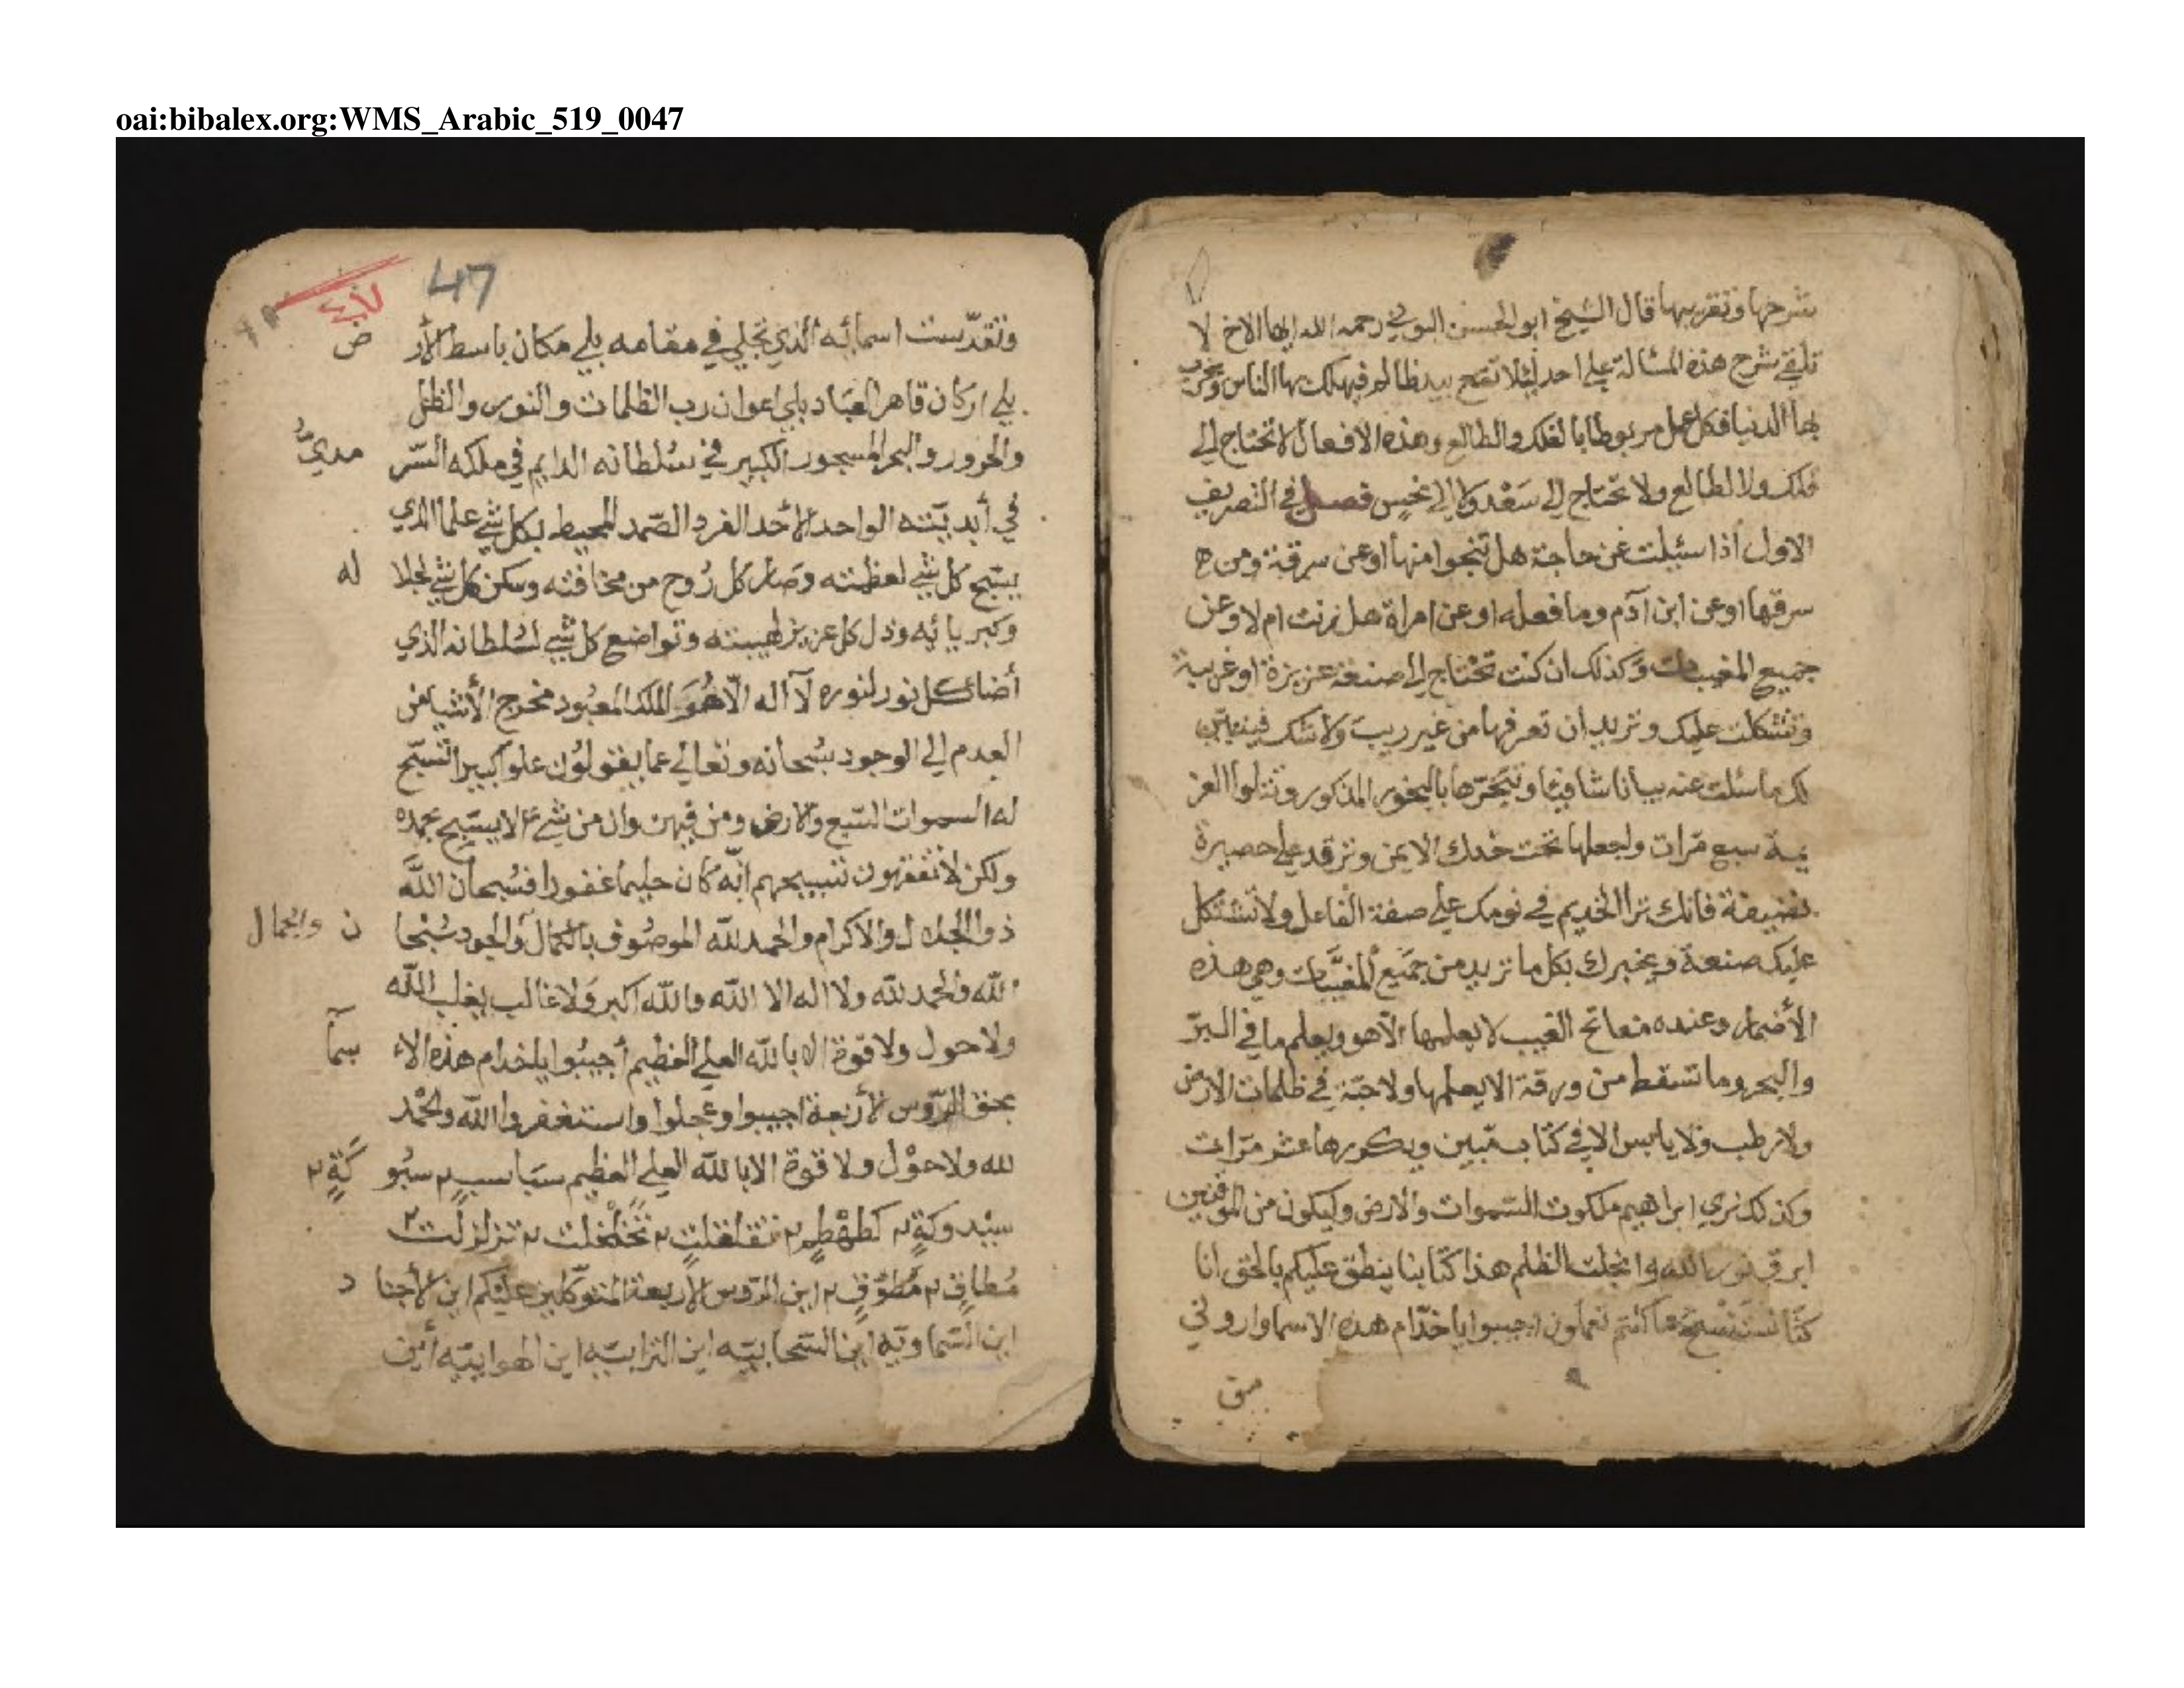 oai:bibalex.org:WMS_Arabic_519_0047
شرحها وتقريبها قال الشيخ ابو الحسن البوني رحمه الله ايها الاخ لا
تلقي شرح هذه المسالة علي احد ليلا تقع بيد ظالم فيهلك بها الناس ويخرب
بها الدنيا فكل عمل مربوطا بالفلك والطالع وهذه الافعال لا تحتاج الي
فلك ولا لطالع ولا تحتاج الي سَعْد ولا الي نحسٍ فصل في التصريف
الاول اذا سئيلت عن حاجة هل تنجوا منها او عن سرقة ومن ه
سرقها او عن ابن آدم وما فعله او عن امراة هل زنت ام لا وعن
جميع المغيبات وكذلك ان كنت تحتاج الي صنعة عزيزة او غريبة
وتشكلت عليك وتريد ان تعرفها من غير ريب ولا شك
لك ما سئلت عنه بيانا شافيا وتبخرها بالبخور المذكور وتتلوا العز
يمة سبع مرّات ولجعلها تحت خدك الايمن وترقد علي حصيرة
نضيفة فانك ترا الخديم في نومك علي صفة الفاعل ولا تشتكل
عليك صنعة ويخبرك بكل ما تريد من جَمَيع المغيَّبات وهي هذه
الأضمار وعنده مفاتح الغيب لا يعلمها الّا هو ويعلم ما في البرّ
والبحر وما تسقط من ورقة الا يعلمها ولا حبّة في ظلمات الارض
ولا رطب ولا يابس الا في كتاب مّبين ويكورها عشر مرّات
وكذلك نري ابراهيم ملكوت السّموات والارض وليكون من الموقنين
ابرق نور الله وانجلت الظلم هذا كتابنا ينطق عليكم بالحق انا
كنّا نستنسخ ما كنتم تعملون اجيبوا يا خدّام هذه الاسما واروني
47
وتقدّست اسمائه الذي تجلي في مقامه بلي مكان باسط الأر ض
بلي اركان قاهر العبَاد بلي اعوان رب الظلمات والنور والظل
والحرور والبحر المسجور الكبير في سُلطانه الدايم في ملكه السّر مديُّ
في أبديّته الواحد الأحد الفرد الصّمد المحيط بكل شي علما الذي
يسبّح كل شي لعظمته وصار كل رُوح من مخافته وسكن كل شي لجلا له
وكبريائه وذل كل عزيز لهيبته وتواضع كل شي لسُلطانه الذي
أضاء كل نور لنوره لآ اله الّا هُوَ الملك المعبُود مخرج الأشيا من
العدم الي الوجود سُبحانه وتعالي عما يقولُون علوا كبيرا تسبّح
له السموات السّبع والارض ومن فيهن وان من شيء الا يسبّح بحمده
ولكن لا تفقهون تسبيحهم انّه كان حليما غفورا فسُبحان اللَّه
ذو الجلال والاكرام والحمد للّه الموصُوف بالكمال والجود سُبْحا ن والجمال
اللّه والحمد للّه ولا اله الا اللّه واللّه اكبر وَلا غالب يغلب اللّه
ولا حول ولا قوة الا باللّه العلي العظيم أجيبُوا يا خدام هذه الا سمآ
بحق الرّوس الأربعة اجيبوا وعجلوا واستغفروا اللّه والحمْد
لله ولا حوْل ولا قوة الا باللّه العلي العظيم سبَاسبٍ ٢ سبُو كَةٍ ٢
سيْدوكةٍ ٢ كطهْطٍم ٢ تقلقلتٍ ٢ تخلخلت ٢ تزلزلت ٢
مُطافٍ ٢ مُطوّفٍ ٢ اين الرّوس الأربعة المتوكّلين عليْكم اين الأجنا د
اين السّماويّة اين السّحابيّه اين الترابيّه اين الهواييّه أين